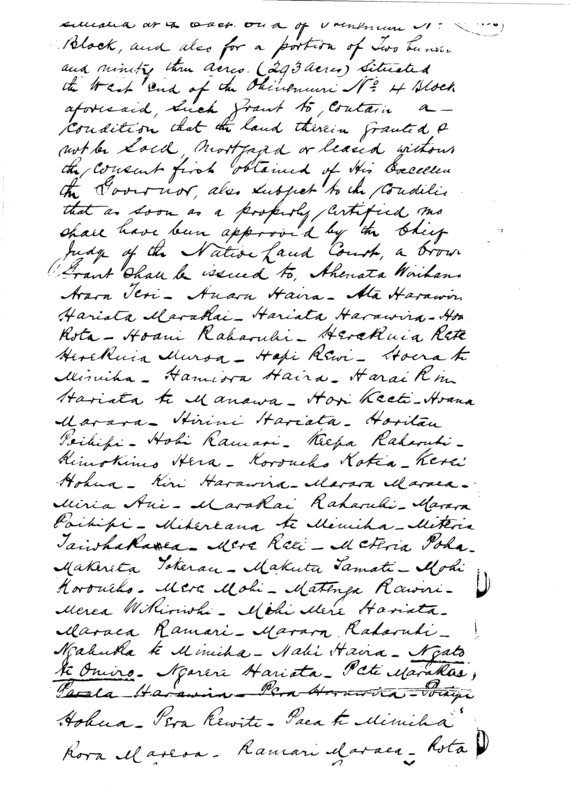 situated at the East End of Ohinemuri No.
Block, and also for a portion of Two hun
and ninety three acres. (293 acres) Situated
the West end of the Ohinemuri No 4 Block
aforesaid, Such grant to, Contain a —
Condition that the land therein granted
not be Sold, Mortgaged or leased without
the, Consent first obtained of His Excellen
the Governor, also subject to the Conditio
that as soon as a properly, Certified ma
shall have been approved by the Chief
Judge of the Native Land Court, a Crow
Grant Shall be issued to, Ahenata Wirihana
Arara Teri — Anaru Haira — Ata Harawir
Hariata Marakai — Hariata Harawira — Hoa
Rota — Hoani Raharuhi — Herekuia Rete
Herekuia Muroa — Hapi Rewi — Hoera te
Mimiha — Hamiora Haira — Harai Rim
Hariata te Manawa — Hori Keeti — Hoana
Marara — Hirini Hariata — Horitau
Poihipi — Hohi Ramari — Keepa Raharuhi —
Kimokimo Hera — Koroneho Kotia — Kerei
Hohua — Kiri Harawira — Marara Maraea —
Miria Ani — Marakai Raharuhi — Marara
Poihipi — Mihereana te Mimiha — Miteria
Taiwhakaaea — Mere Reti — Meteria Poha —
Makereta Tokerau — Makuta Tamati — Mohi
Koroneho — Mere Mohi — Matenga Rawiri —
Merea Wikiriwhi — Mohi Mere Hariata —
Maraea Ramari — Marara Raharuhi —
Ngahuka te Mimiha — Nahi Haira — Ngato
te Omiro — Ngarere Hariata — Pete Marakai,
Parata Harawira — Pera Harawira — Potaipe
Hohua — Pera Rewiti — Paea te Mimiha
Rora Mareoa — Ramari Maraea — Rota